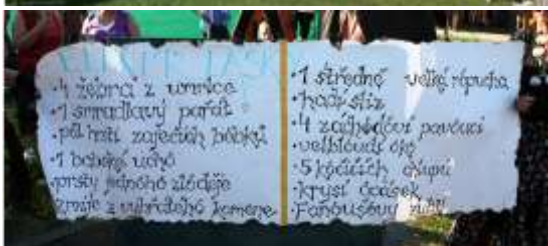 4 žebra z umrlce
1 smradlavý pařát
půl hrsti zaječích bobků
1 babské ucho
prsty jednoho zloděje
zmije z vyhřátého kamene
1 středně velká ropucha
hadí sliz
4 záchodoví pavouci
velbloudí oko
5 kočičích chlupů
krysí ocásek
Fanoušovy zuby